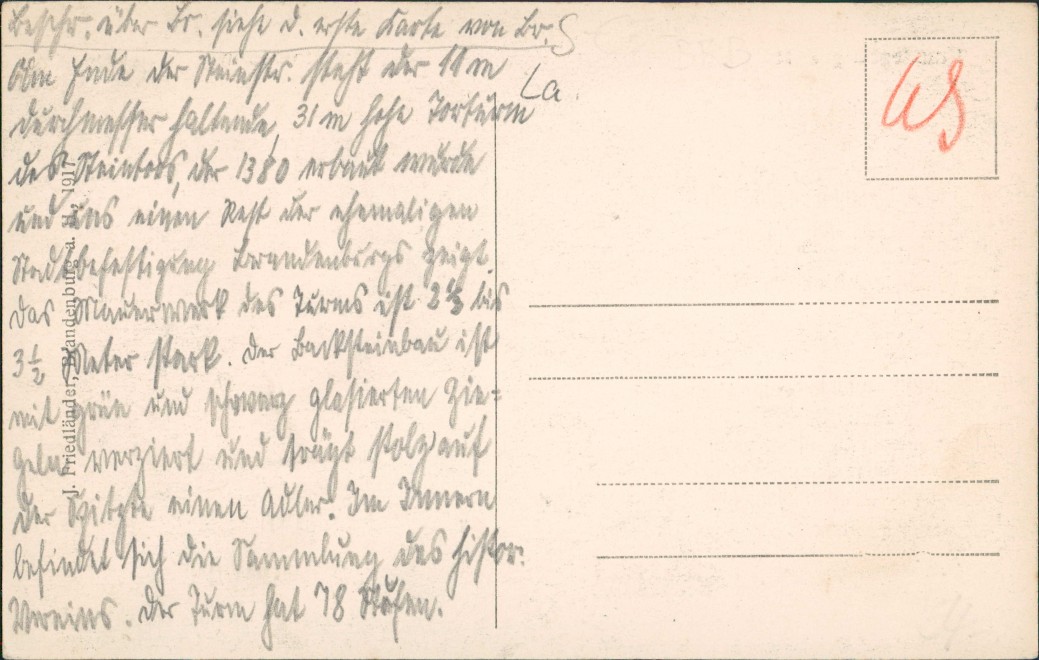 Beschr. über Br. siehe d. erste Karte von Br. S
La.
Am Ende der Steinstr. steht der 11 m
durchmesser haltende, 31 m hohe Torturm
des Steintors, der 1380 erbaut wurde
und uns einen Rest der ehemaligen
Stadtbefestigung Brandenburgs zeigt.
Das Mauerwerk des Turms ist bis
3 1/2 Meter stark. Der Backsteinbau ist
mit grün und schwarz glasierten Zie=
geln verziert und trägt stolz auf
der Spitze einen Adler. Im Innern
befindet sich die Sammlung des histor.
Vereins. Der Turm hat 78 Stufen.
J. Friedländer, Brandenburg a. H., 1917